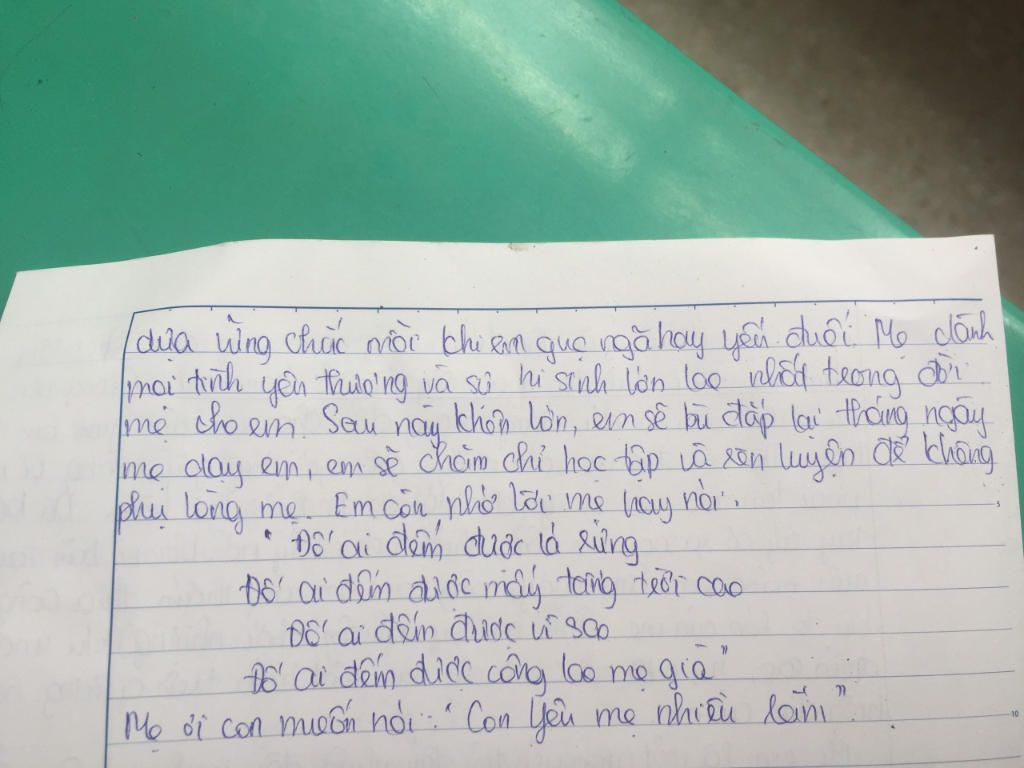 dựa vững chắc mỗi khi em gục ngã hay yếu đuối. Mẹ dành
mọi tình yêu thương và sự hi sinh lớn lao nhất trong đời
mẹ cho em. Sau này khôn lớn, em sẽ bù đắp lại tháng ngày
mẹ dạy em, em sẽ chăm chỉ học tập và rèn luyện để không
phụ lòng mẹ. Em còn nhớ lời mẹ hay nói:
"Đố ai đếm được lá rừng
Đố ai đếm được mấy tầng trời cao
Đố ai đếm được vì sao
Đố ai đếm được công lao mẹ già"
Mẹ ơi con muốn nói: "Con yêu mẹ nhiều lắm".
10